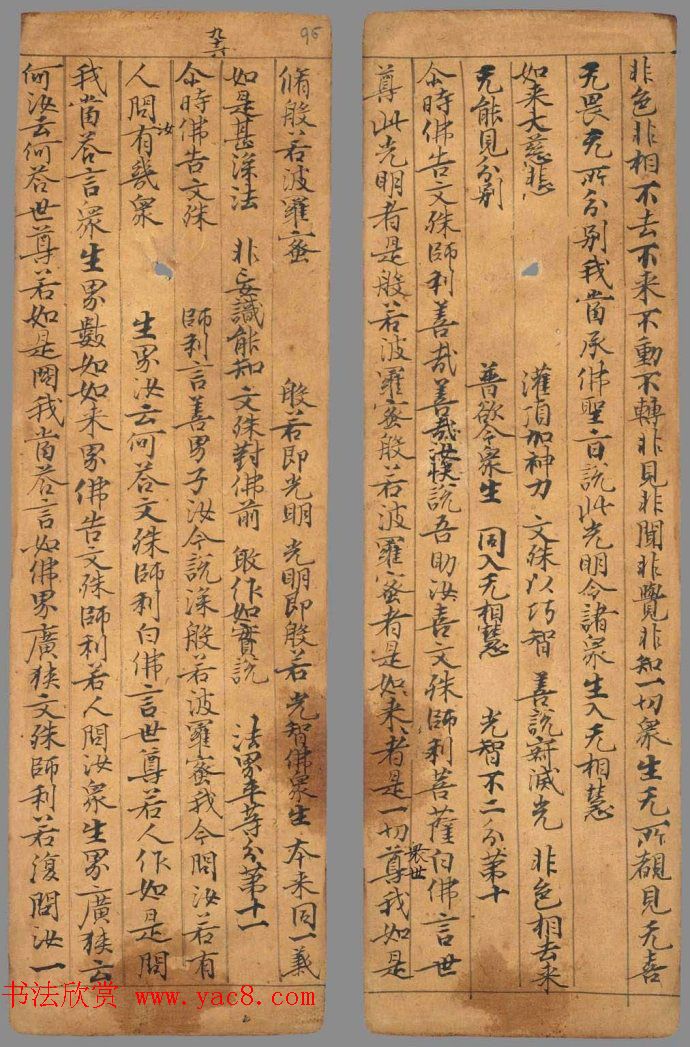 非色非相不去不来不動不轉非見非聞非覺非知一切衆生无所覩見无喜
无畏无所分別我當承佛聖旨說此光明令諸衆生入无相慧
如来大慈悲 灌頂加神力 文殊以巧智 善說寂滅光 非色相去来
无能見分別 普欲令衆生 同入无相慧 光智不二分第十
尒時佛告文殊師利善哉善哉汝快說吾助汝喜文殊師利菩薩白佛言世
尊此光明者是般若波羅蜜般若波羅蜜者是如来者是一切尊我如是
衆世
96
脩般若波羅蜜 般若即光明 光明即般若 光智佛衆生 本来同一義
如是甚深法 非妄識能知 文殊對佛前 敢作如實說 法界平等分第十一
尒時佛告文殊師利言善男子汝今說深般若波羅蜜我今問汝若有
人問汝有幾衆生界汝云何荅文殊師利白佛言世尊若人作如是問
我當荅言衆生界數如如来界佛告文殊師利若人問汝衆生界廣狹云
何汝云何荅世尊若如是問我當荅言如佛界廣狹文殊師利若復問汝一
书法欣赏 www.yac8.com